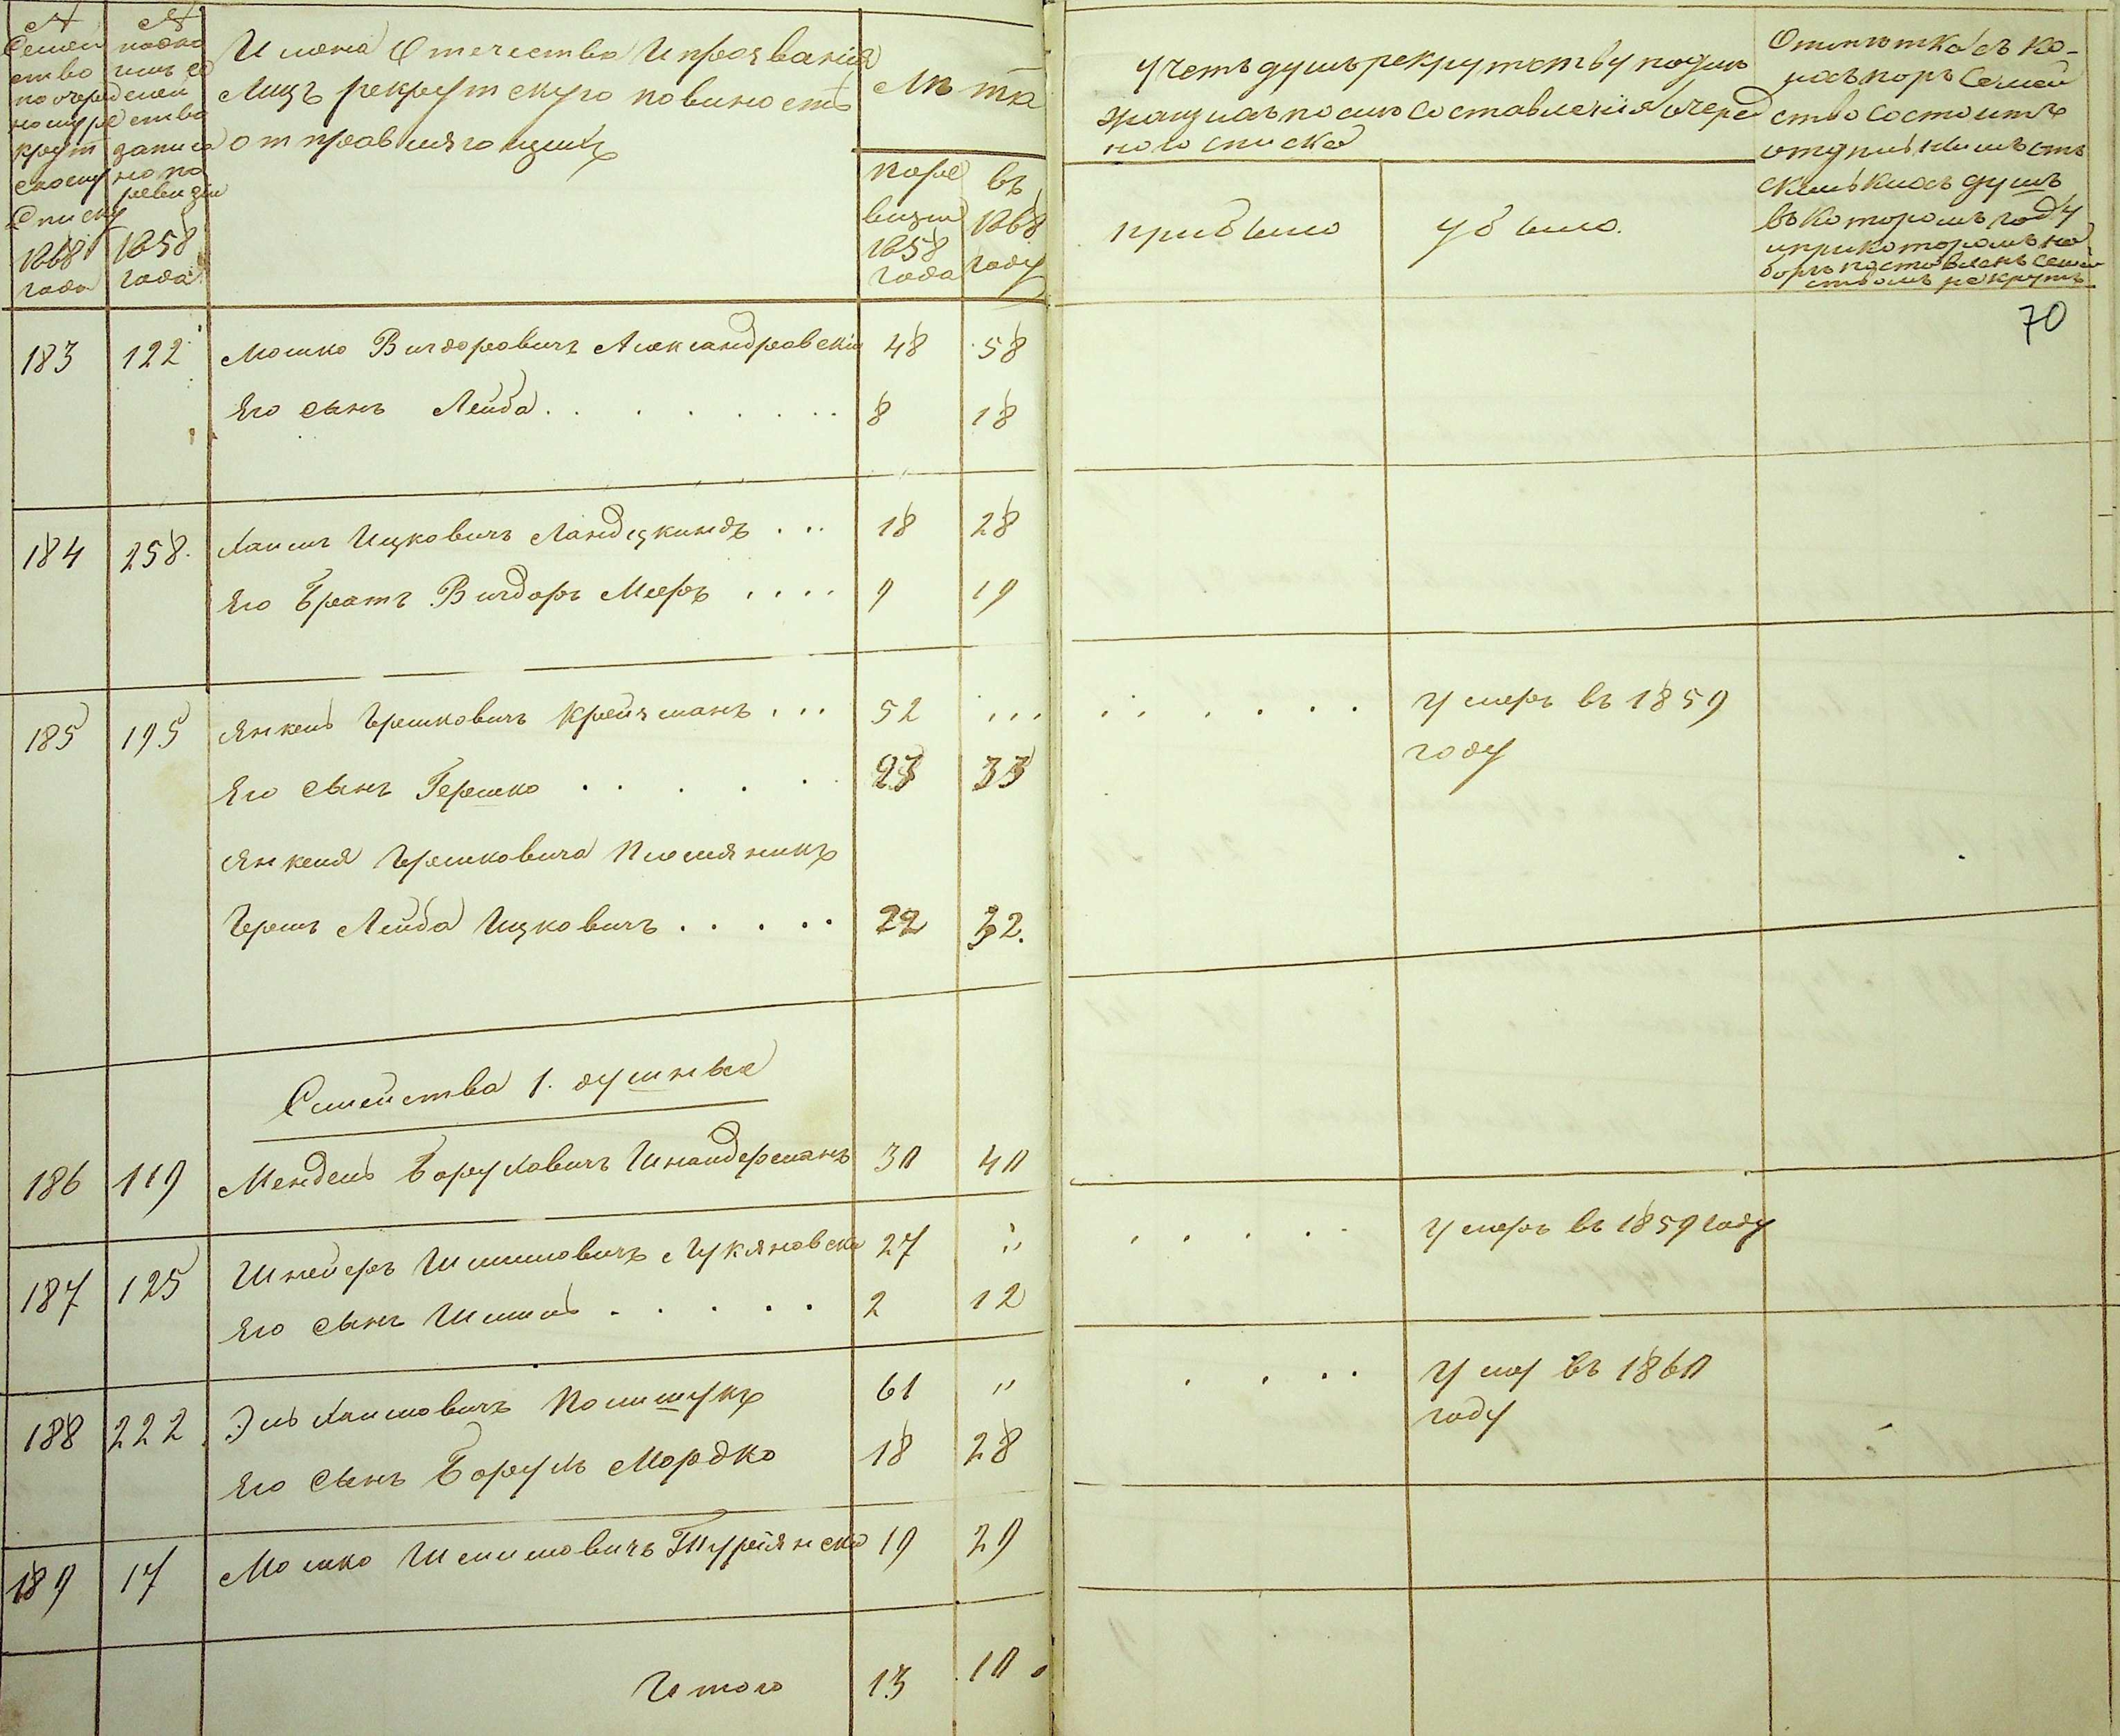 № Семей
ство
по очеред
ному ре
крут
скому
списку
1868
года
№
подко
имъ се
мей
ство
записа
но по
ревизии
1858
года
Имена Отечество И прозвания
Лицъ рекрутскую повиность
отправляющихъ
Лѣта
по ре
визии
1858
года
въ
1868
году
Учетъ душъ рекрутству подле
жащихъ после составления очеред
ного списка
прибыло
убыло.
Отмѣтка съ ко-
ихъ поръ Семей
ство состоитъ
скольких душъ
въ котором году
и при котором на
боре поставленъ семей
ствомъ рекрутъ
70
183 122 Мошко Вигдоровичъ Александровский 48 58
Его сынъ Лейба . . . . . . . 8 18
184 258. Хаимъ Ицковичъ Ландскиндъ . . . 18 28
Его Братъ Вигдоръ Мееръ . . . . 9 19
185 195 Янкель Гершковичъ Крейзманъ . . . 52 . . . . . . . . . Умеръ въ 1859
году
Его сынъ Гершко . . . . . 23 33
Янкеля Гершковича Племяникъ
Гершъ Лейба Ицковичъ . . . . . 22 32.
Семейства 1. душные
186 119 Мендель Боруховичъ Шнайдерманъ 30 40
187 125 Шнейеръ Шмилович Лукяновски 27 " . . . . . Умеръ въ 1859 году
Его сынъ Шмиль . . . . . 2 12
188 222 Эль Хаимовичъ Полищукъ 61 " . . . . Уму въ 1860
году
Его сынъ Борухъ Мордко 18 28
189 17 Мошко Шмиловичъ Турянски 19 29
Итого 13 10